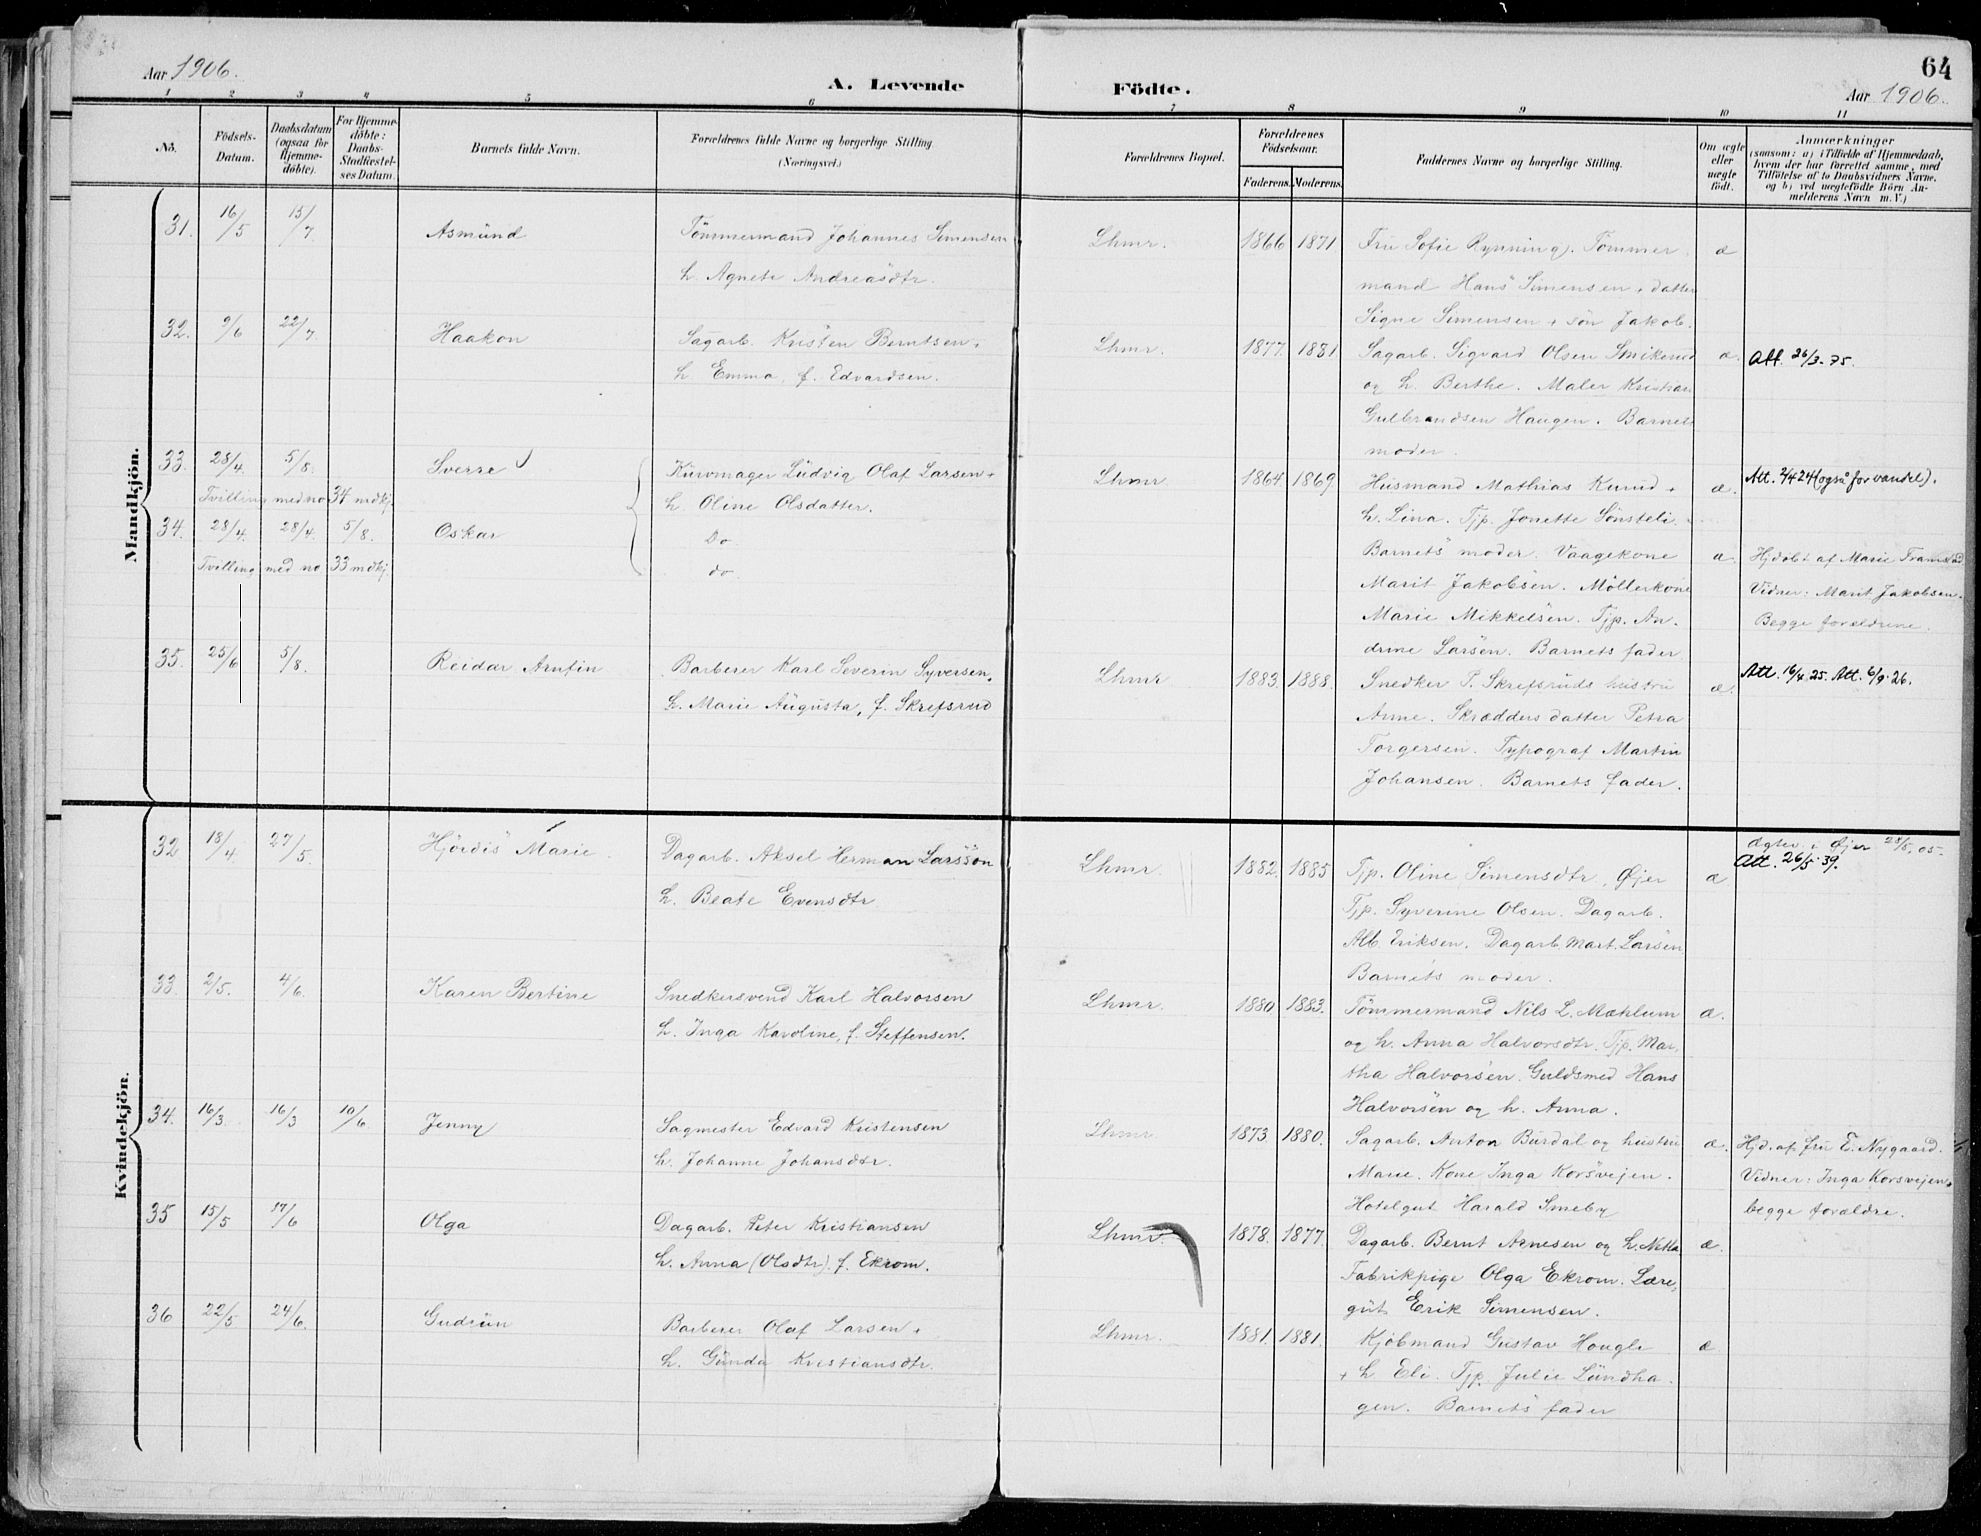 64
Aar 1906.
A. Levende Födte.
Aar 1906.
1 2 3 4 5 6 7 8 9 10 11
No.
Födsels-Datum.
Daabsdatum (ogsaa for Hjemme-döbte).
For Hjemme-döbte: Daabs-Stadfæstel-ses Datum.
Barnets fulde Navn.
Forældrenes fulde Navne og borgerlige Stilling (Næringsvei.)
Forældrenes Bopæl.
Forældrenes Födselsaar.
Faderens. Moderens.
Faddernes Navne og borgerlige Stilling.
Om ægte eller uægte födt.
Anmærkninger
(saasom: a) i Tilfælde af Hjemmedaab,
hvem der har forrettet samme, med
Tilföielse af to Daabsvidners Navne,
og b) ved uægtefödte Börn An-
melderens Navn m.V.)
Mandkjön.
31. 16/5 15/7 Asmünd Tömmermand Johannes Simensen Lhmr. 1866 1871 Fru Sofie Rynning. Tömmer æ
h. Agnete Andreasdtr. mand Hans Simensen + datter
Signe Simensen + sön Jakob.
32. 9/6 22/7. Haakon Sagarb. Kristen Berntsen + Lhmr. 1877. 1881 Sagarb. Sigvard Olsen æ. Att. 26/3-75.
h. Emma, f. Edvardsen. og h. Berthe. Maler Kristian
Gulbrandsen Haugen. Barnets
moder.
33. 28/4. 5/8. Sverre Kurvmager Ludvig Olaf Larsen + Lhmr 1864 1869 Husmand Mathias Kurud + æ. Att. 2/4 24 (også for vandel).
Tvilling med no 34 mdkj. h. Oline Olsdatter. h. Lina. Tjp. Jonette Sönsteli.
34. 28/4. 28/4. 5/8. Oskar Do Barnets moder. Vaagekone æ. Hjdöbt af Marie
Tvilling med no 33 mdkj do Marit Jakobsen. Möllerkone Vidner: Marit Jakobsen.
Marie Mikkelsen. Tjp. An- Begge forældrene.
drine Larsen. Barnets fader
35. 25/6 5/8. Reidar Arnfin Barberer Karl Severin Syversen. Lhmr 1883. 1888. Snedker P. Skrefsruds hustru æ. Att. 16/4 25. Att. 6/9-26.
h. Marie Augusta, f. Skrefsrud Anne. Skrædders datter Petra
Torgersen. Typograf Martin
Johansen. Barnets fader.
Kvindekjön.
32 18/4. 27/5. Hjördis Marie. Dagarb. Aksel Herman Larsson Lhmr. 1882. 1885 Tjp. Oline Simensdtr, Øjer æ Ægtev. i Øjer 28/5. 05.
h. Beate Evensdtr Tjp. Syverine Olsen. Dagarb. Att. 26/5-39.
Alb. Eriksen. Dagarb. Mart. Larsen
Barnets moder.
33. 2/5. 4/6. Karen Bertine Snedkersvend Karl Halvorsen Lhmr. 1880 1883. Tömmermand Nils L. Mæhlum æ.
h. Inga Karoline, f. Steffensen. og h. Anna Halvorsdtr. Tjp. Mar-
tha Halvorsen. Guldsmed Hans
Halvorsen og h. Anna.
34. 16/3. 16/3 10/6. Jenny Sagmester Edvard Kristensen Lhmr 1873. 1880. Sagarb. Anton Burdal og hustru æ. Hjd. af fru E. Nygaard.
h. Johanne Johansdtr. Marie. Kone Inga Korsvejen. Vidner: Inga Korsvejen,
Hotelgut Harald Smeby begge forældre.
35 15/5 17/6 Olga Dagarb. Peter Kristiansen Lhmr. 1878. 1877. Dagarb. Bernt Arnesen og h. æ.
h. Anna (Olsdtr). f. Ekrom. Fabrikpige Olga Ekrom. Lære-
gut Erik Simensen.
36 22/5 24/6. Gudrun Barberer Olaf Larsen + Lhmr. 1881. 1881. Kjöbmand Gustav Hougli æ
h. Gunda Kristiansdtr. + h. Eli. Tjp. Julie Lundha-
gen. Barnets fader